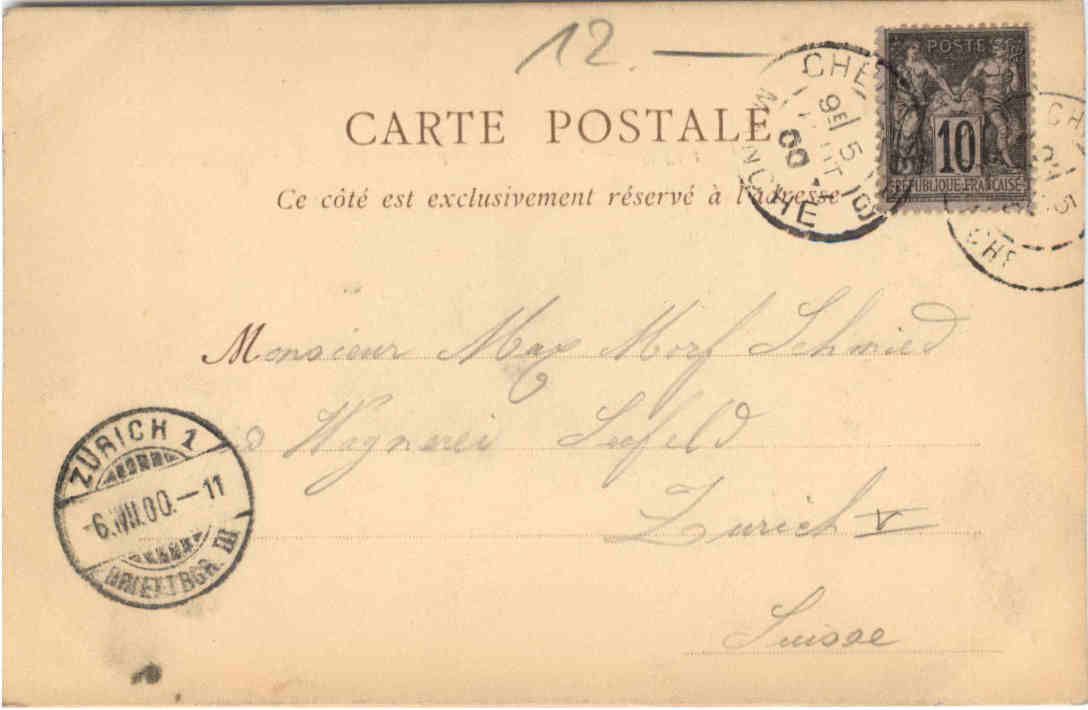 12.
CARTE POSTALE
Ce côté est exclusivement réservé à l'adresse
POSTES
10
REPUBLIQUE FRANCAISE
CHE
9E 5
00
MANCHE
CHE
5
CHE
Monsieur Max Morf Schmied
Wagnerei Seefeld
Zurich V
Suisse
ZÜRICH 1
-6.VIII.00.-11
BRIEFTRGR. III